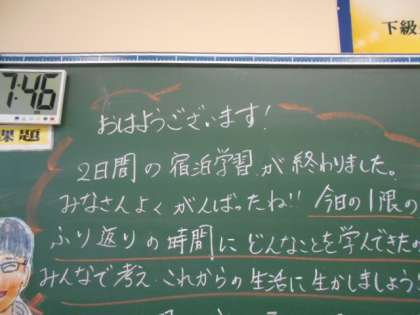 下級
7:46
課題
おはようございます!
2日間の宿泊学習が終わりました。
みなさんよくがんばったね!! 今日の1限の
ふり返りの時間にどんなことを学んできたの
みんなで考え、これからの生活に生かしましょう!